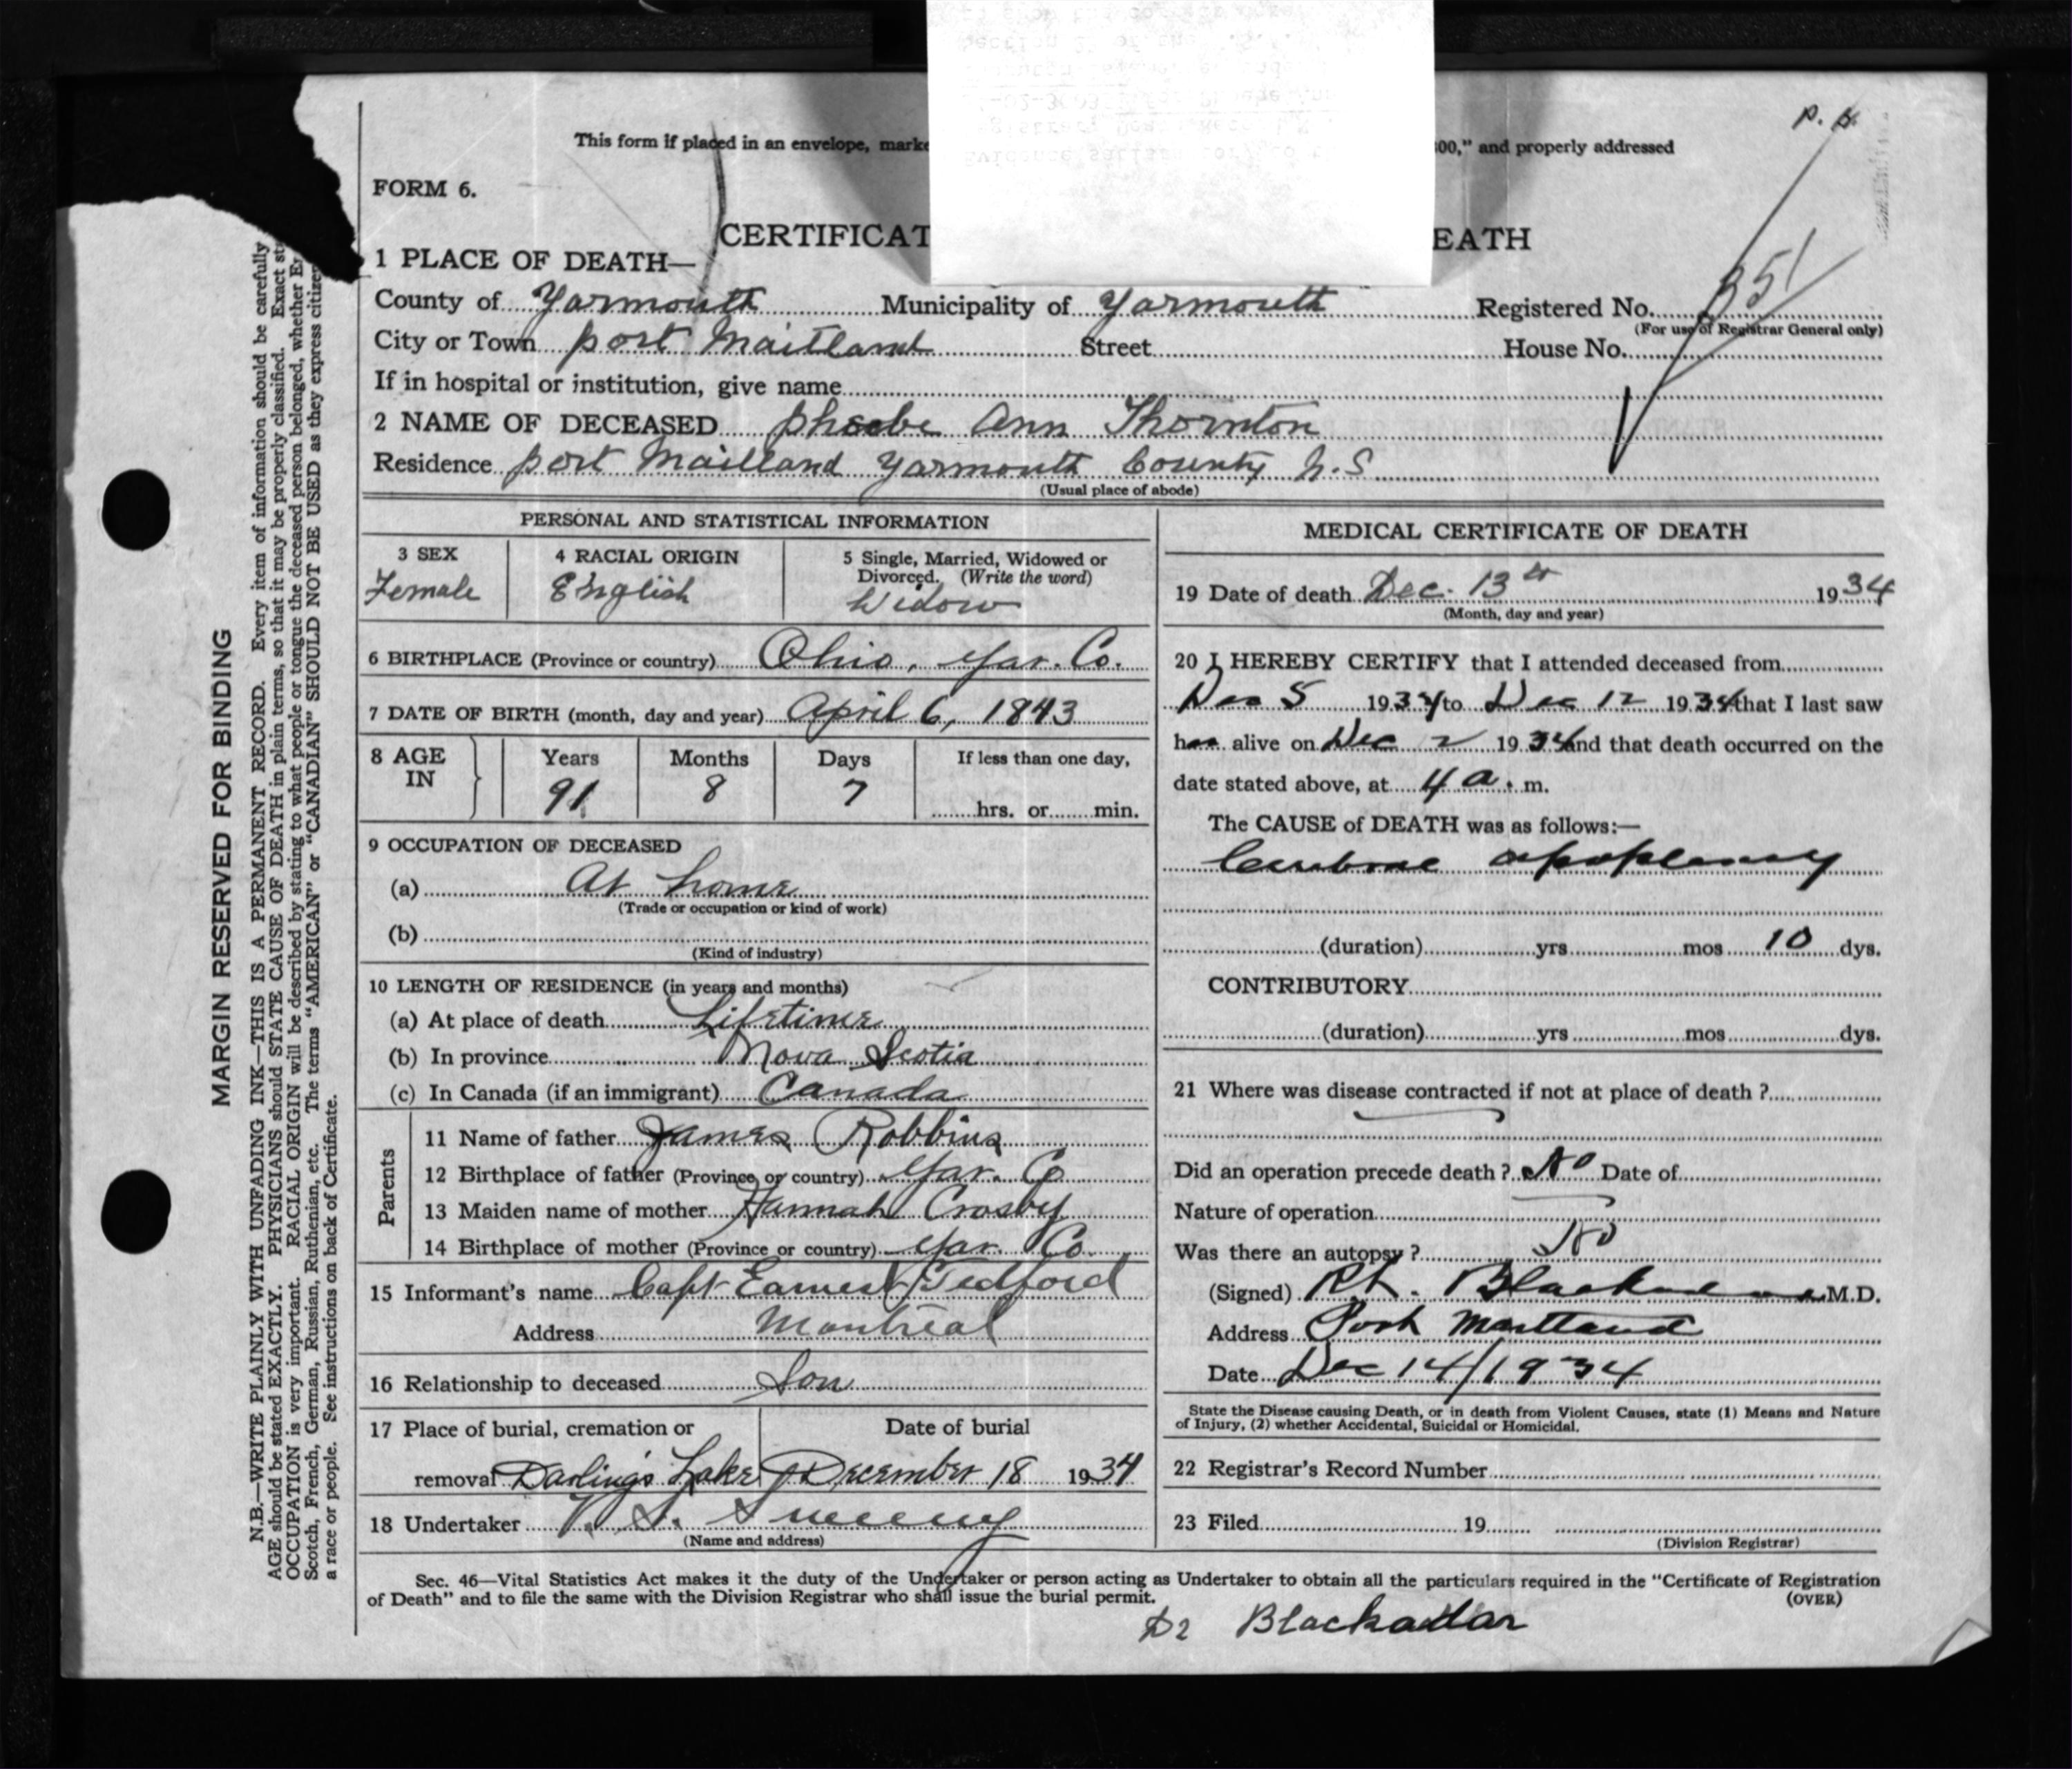 P.
This form if placed in an envelope, marke 00," and properly addressed
FORM 6.
CERTIFICAT EATH
1 PLACE OF DEATH—
351
County of Yarmouth Municipality of Yarmouth Registered No.
(For use of Registrar General only)
City or Town Port Maitland Street House No.
If in hospital or institution, give name
2 NAME OF DECEASED Phoebe Ann Thornton
Residence Port Maitland Yarmouth County N.S
(Usual place of abode)
PERSONAL AND STATISTICAL INFORMATION
3 SEX 4 RACIAL ORIGIN 5 Single, Married, Widowed or
Divorced. (Write the word)
Female English Widow
6 BIRTHPLACE (Province or country) Ohio, Yar. Co.
7 DATE OF BIRTH (month, day and year) April 6, 1843
8 AGE IN Years Months Days If less than one day,
91 8 7 hrs. or min.
9 OCCUPATION OF DECEASED
(a) At home
(Trade or occupation or kind of work)
(b)
(Kind of industry)
10 LENGTH OF RESIDENCE (in years and months)
(a) At place of death Lifetime
(b) In province Nova Scotia
(c) In Canada (if an immigrant) Canada
Parents
11 Name of father James Robbins
12 Birthplace of father (Province or country) Yar. Co
13 Maiden name of mother Hannah Crosby
14 Birthplace of mother (Province or country) Yar. Co.
15 Informant's name Capt Earnest Tedford
Address Montreal
16 Relationship to deceased Son
17 Place of burial, cremation or Date of burial
removal Darling's Lake December 18 1934
18 Undertaker V. S. Sweeny
(Name and address)
MEDICAL CERTIFICATE OF DEATH
19 Date of death Dec. 13th 1934
(Month, day and year)
20 I HEREBY CERTIFY that I attended deceased from
Dec 5 1934 to Dec 12 1934 that I last saw
her alive on Dec 2 1934 and that death occurred on the
date stated above, at 4 a. m.
The CAUSE of DEATH was as follows:—
Cerebral apoplexy
(duration) yrs mos 10 dys.
CONTRIBUTORY
(duration) yrs mos dys.
21 Where was disease contracted if not at place of death ?
Did an operation precede death ? No Date of
Nature of operation
Was there an autopsy ? No
(Signed) Blackadar M.D.
Address Port Maitland
Date Dec 14/1934
State the Disease causing Death, or in death from Violent Causes, state (1) Means and Nature
of Injury, (2) whether Accidental, Suicidal or Homicidal.
22 Registrar's Record Number
23 Filed 19
(Division Registrar)
Sec. 46—Vital Statistics Act makes it the duty of the Undertaker or person acting as Undertaker to obtain all the particulars required in the "Certificate of Registration
of Death" and to file the same with the Division Registrar who shall issue the burial permit.
(OVER)
Dr Blackadar
MARGIN RESERVED FOR BINDING
N.B.—WRITE PLAINLY WITH UNFADING INK—THIS IS A PERMANENT RECORD. Every item of information should be carefully
AGE should be stated EXACTLY. PHYSICIANS should STATE CAUSE OF DEATH in plain terms, so that it may be properly classified. Exact st
OCCUPATION is very important. RACIAL ORIGIN will be described by stating to what people or tongue the deceased person belonged, whether En
Scotch, French, German, Russian, Ruthenian, etc. The terms "AMERICAN" or "CANADIAN" SHOULD NOT BE USED as they express citizen
a race or people. See instructions on back of Certificate.